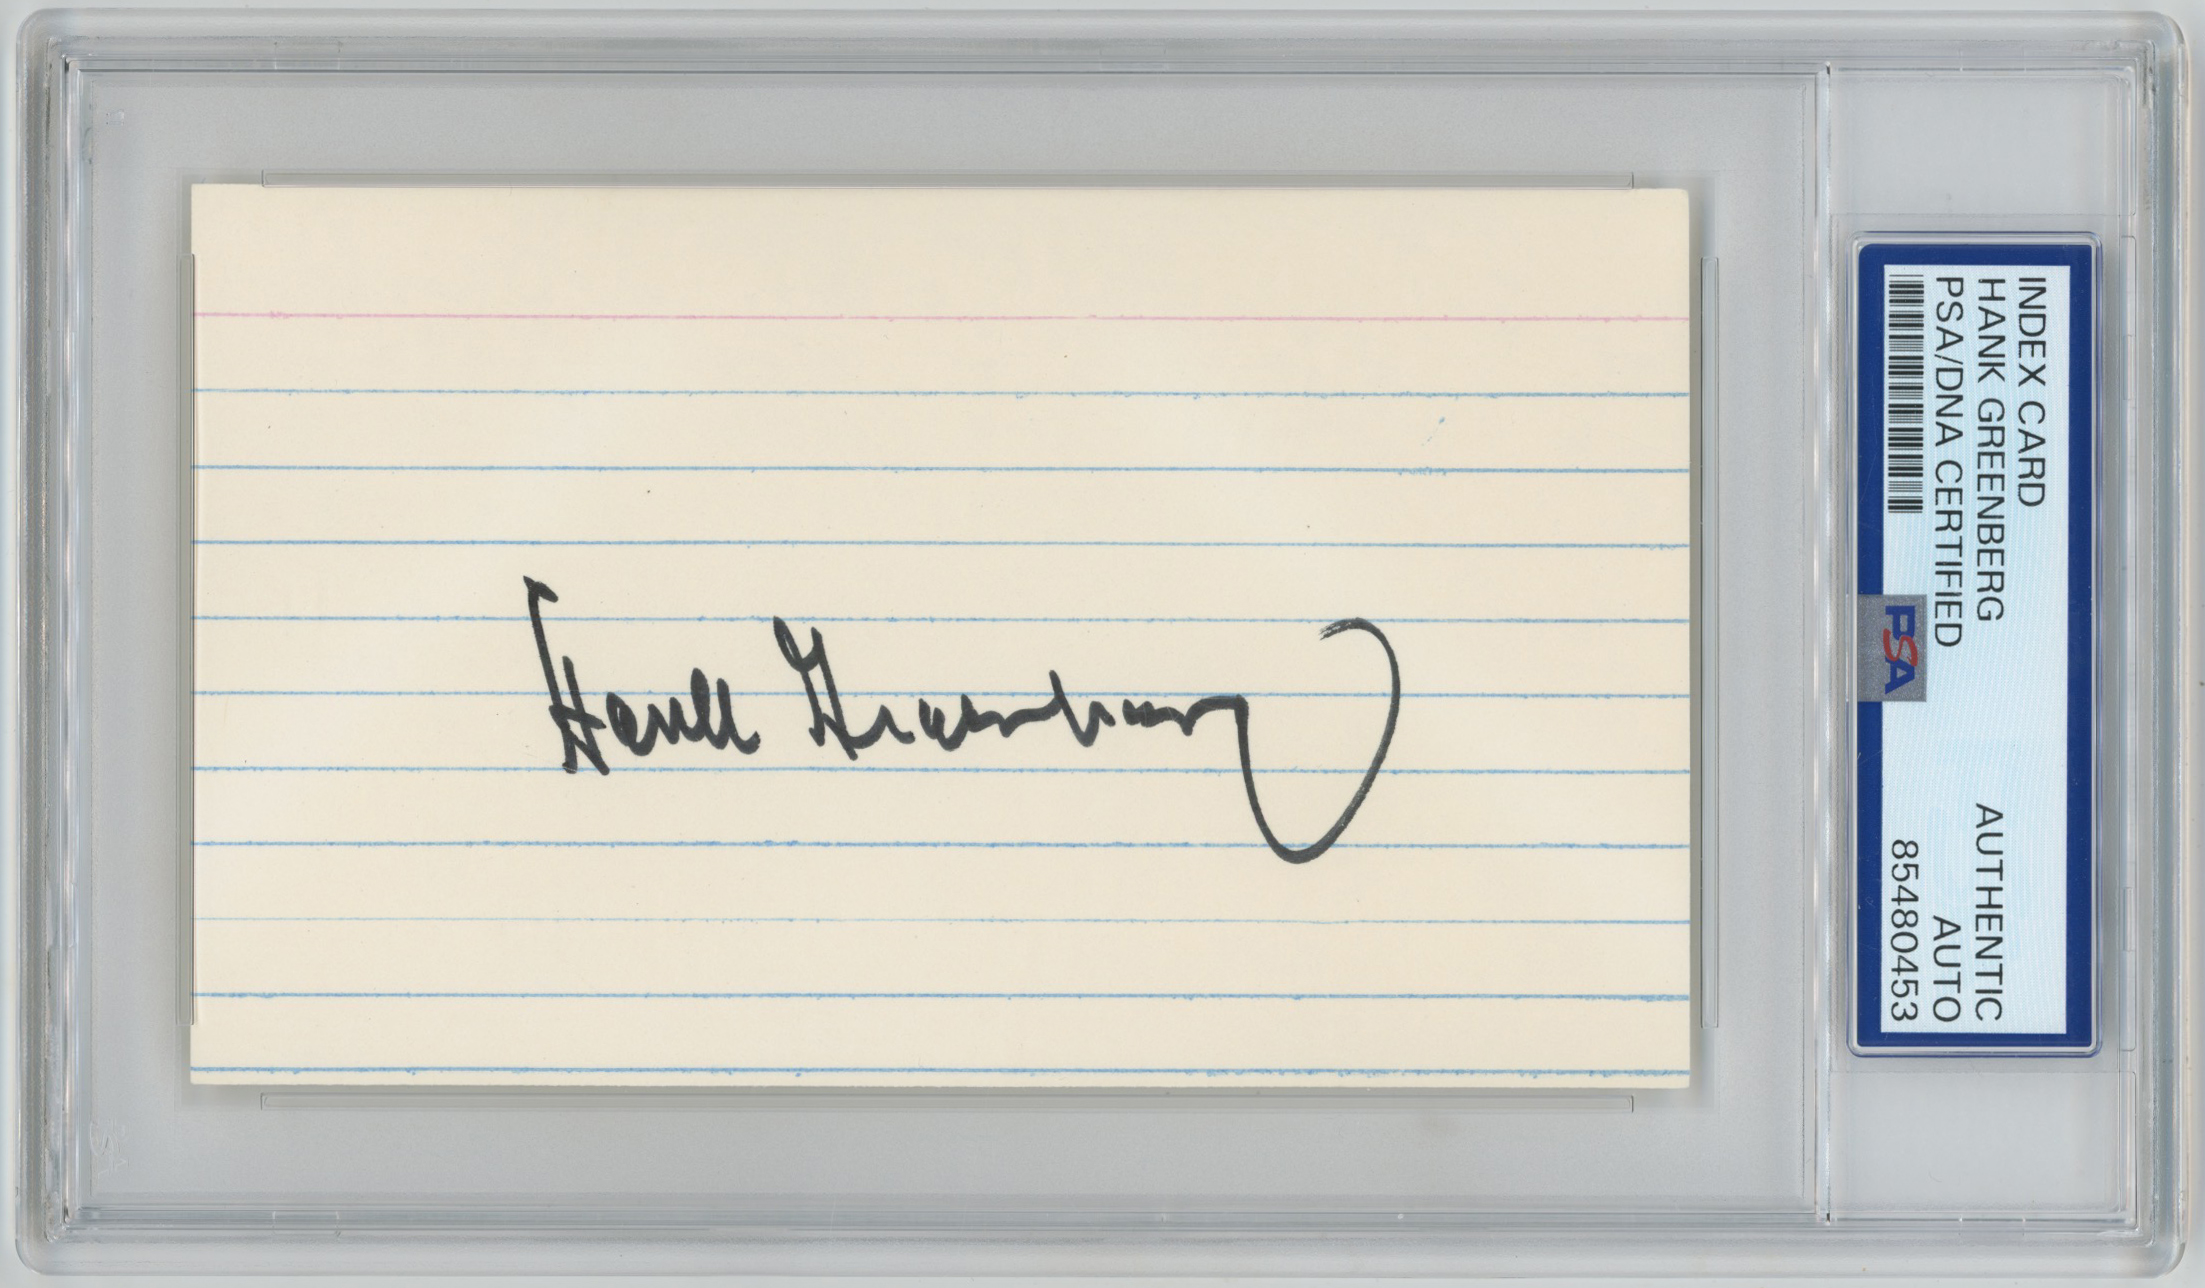 Hank Greenberg
INDEX CARD
HANK GREENBERG
AUTHENTIC
PSA/DNA CERTIFIED
AUTO
85480453
PSA